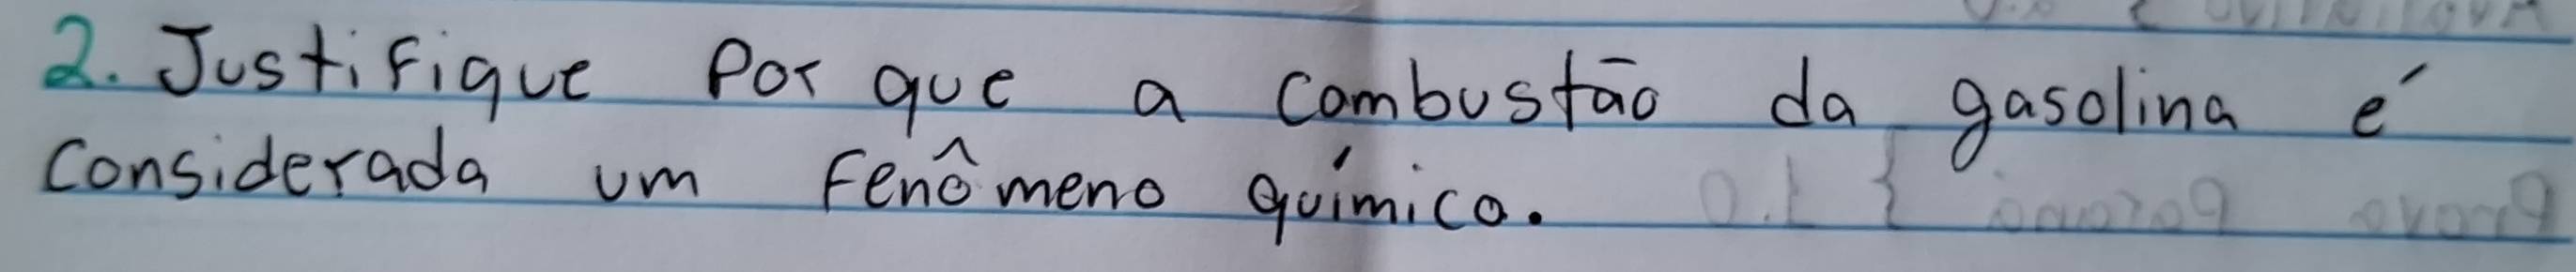 2. Justifique Por que a combustão da gasolina é
considerada um fenômeno químico.